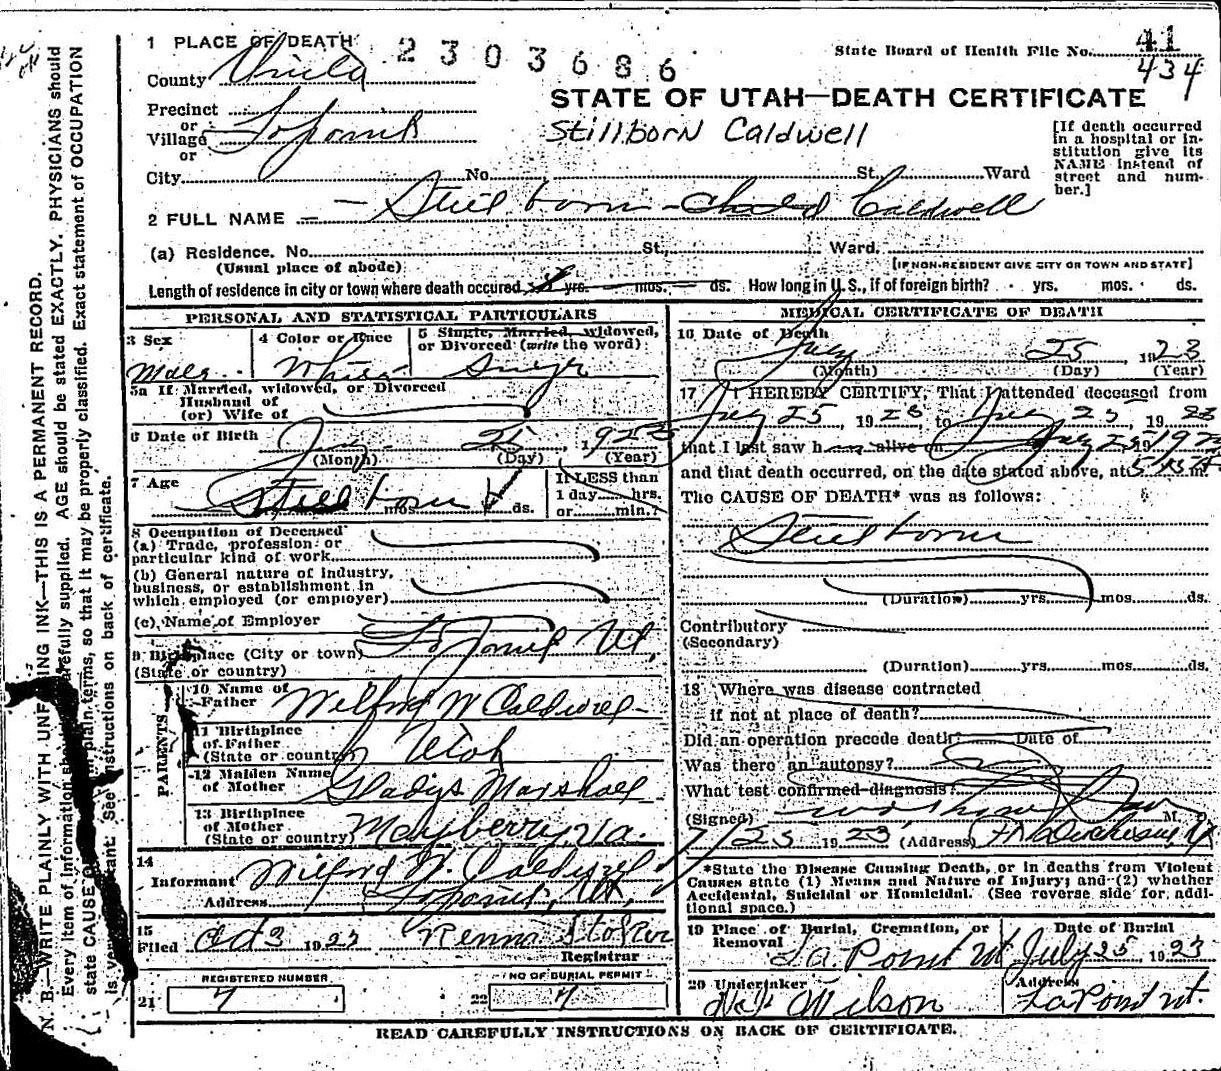 1 PLACE OF DEATH
2303686
State Board of Health File No. 41
434
County Uintah
STATE OF UTAH—DEATH CERTIFICATE
Precinct
or
Village Lapoint
or
Stillborn Caldwell
[If death occurred
in a hospital or in-
stitution give its
NAME instead of
street and num-
ber.]
City No. St. Ward
2 FULL NAME — Still born - Child Caldwell
(a) Residence. No. St. Ward.
(Usual place of abode)
[IF NON-RESIDENT GIVE CITY OR TOWN AND STATE]
Length of residence in city or town where death occured yrs. mos. ds. How long in U. S., if of foreign birth? yrs. mos. ds.
PERSONAL AND STATISTICAL PARTICULARS
3 Sex
Male
4 Color or Race
White
5 Single, Married, widowed,
or Divorced (write the word)
Single
5a If Married, widowed, or Divorced
Husband of
(or) Wife of
6 Date of Birth
July 25 1923
(Month) (Day) (Year)
7 Age
Still born
mos. ds.
If LESS than
1 day hrs.
or min.?
8 Occupation of Deceased
(a) Trade, profession or
particular kind of work
(b) General nature of industry,
business, or establishment in
which employed (or employer)
(c) Name of Employer
9 Birthplace (City or town) La Point Ut.
(State or country)
PARENTS
10 Name of
Father Wilford W Caldwell
11 Birthplace
of Father
(State or country) Utah
12 Maiden Name
of Mother Gladys Marshall
13 Birthplace
of Mother
(State or country) Mayberry, Va.
14
Informant Wilford W. Caldwell
Address Lapoint, Ut.
15
Filed Oct 3 1923 Renna Stoker
Registrar
REGISTERED NUMBER
21 7
NO OF BURIAL PERMIT
22 7
MEDICAL CERTIFICATE OF DEATH
16 Date of Death
July 25 1923
(Month) (Day) (Year)
17 I HEREBY CERTIFY, That I attended deceased from
July 25 1923, to July 25 1923
that I last saw h alive on July 25 1923
and that death occurred, on the date stated above, at m.
The CAUSE OF DEATH* was as follows:
Still born
(Duration) yrs. mos. ds.
Contributory
(Secondary)
(Duration) yrs. mos. ds.
18 Where was disease contracted
if not at place of death?
Did an operation precede death? Date of
Was there an autopsy?
What test confirmed diagnosis?
(Signed) M. D.
7/25 1923 (Address)
*State the Disease Causing Death, or in deaths from Violent
Causes state (1) Means and Nature of Injury; and (2) whether
Accidental, Suicidal or Homicidal. (See reverse side for addi-
tional space.)
19 Place of Burial, Cremation, or
Removal
La Point Ut
Date of Burial
July 25 1923
20 Undertaker
Wilson
Address
LaPoint Ut.
READ CAREFULLY INSTRUCTIONS ON BACK OF CERTIFICATE.
N. B.—WRITE PLAINLY WITH UNFADING INK—THIS IS A PERMANENT RECORD.
Every item of information should be carefully supplied. AGE should be stated EXACTLY. PHYSICIANS should
state CAUSE OF plain terms, so that it may be properly classified. Exact statement of OCCUPATION
is very important. See instructions on back of certificate.